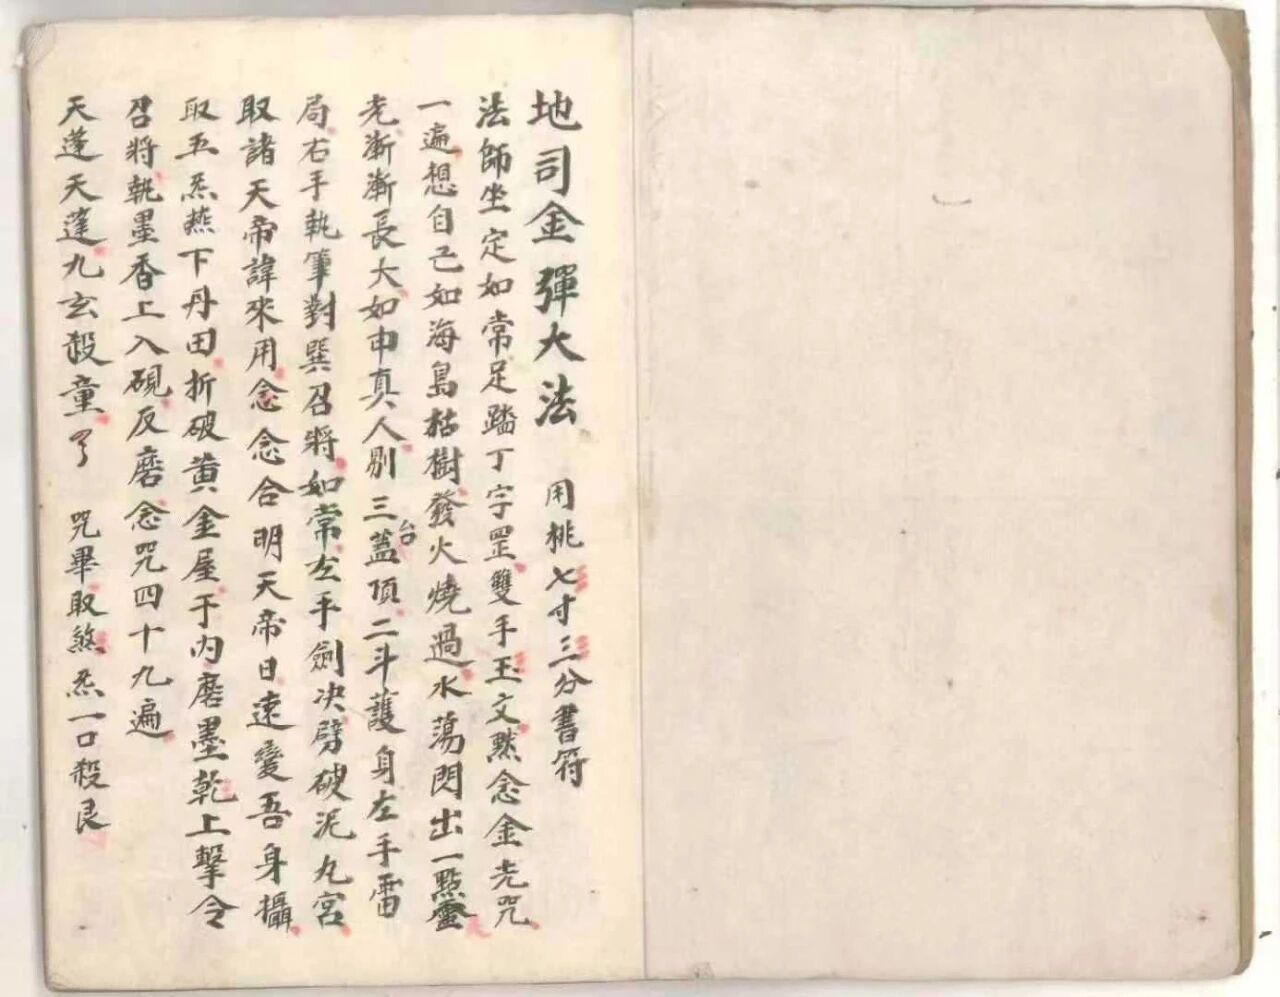 地司金彈大法　用桃七寸三分書符
法師坐定如常足踏丁字罡雙手玉文黙念金光咒
一遍想自己如海島枯樹發火燒過水蕩閃出一點靈
光漸漸長大如申真人剔三台蓋頂二斗護身左手雷
局右手執筆對巽召將如常左手劍决劈破泥九宮
取諸天帝諱來用念念合明天帝日速變吾身攝
取五炁燕下丹田折破黄金屋于内磨墨乾上擊令
召將執墨香上入硯反磨念咒四十九遍
天蓬天蓬九玄殺童了　咒畢取煞炁一口殺艮